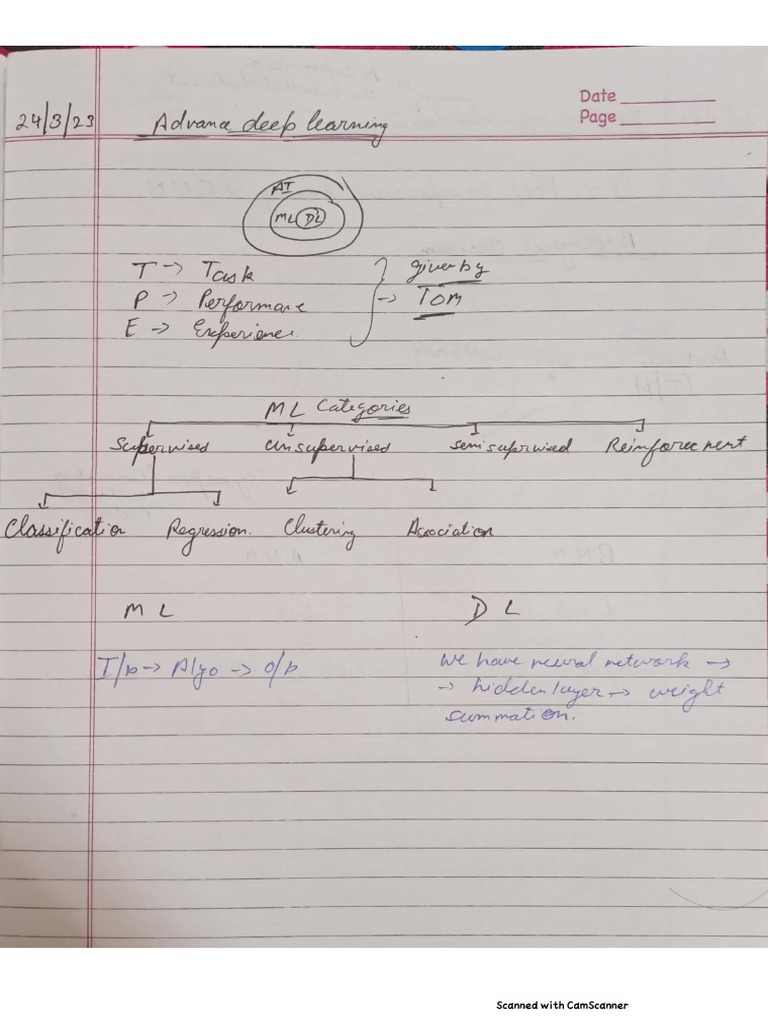 Date
Page
24/3/23 Advance deep learning
AI
ML DL
T -> Task
P -> Performance
E -> Experience.
given by
-> Tom
ML Categories
Supervised unsupervised semisupervised Reinforecment
Classification Regression. Clustering Association
ML DL
I/p -> Algo -> O/p
We have neural network ->
-> hidden layer -> weight
summation.
Scanned with CamScanner